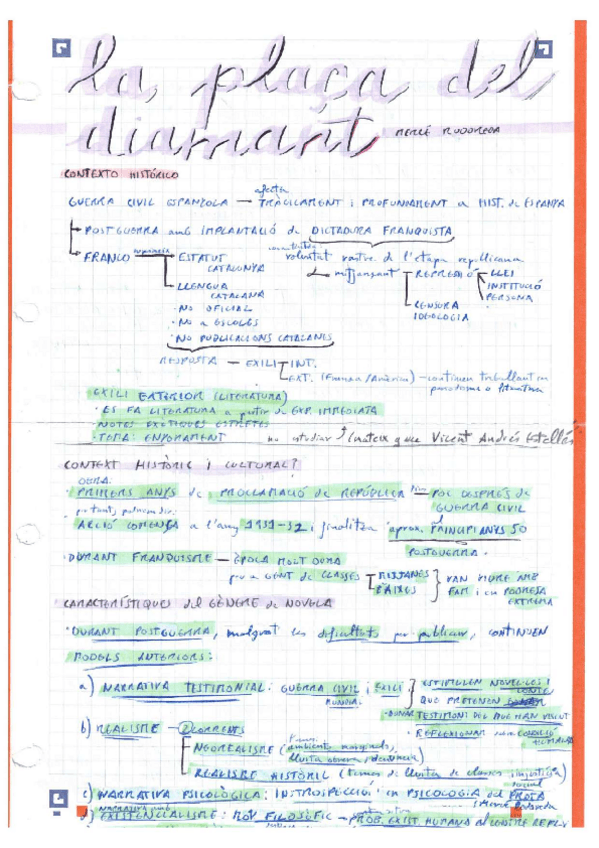 la plaça del
diamant MERCÈ RODOREDA
CONTEXTO HISTÓRICO
afecta
GUERRA CIVIL ESPANYOLA — TRÀGICAMENT i PROFUNDAMENT a HIST. de ESPANYA
POSTGUERRA amb IMPLANTACIÓ de DICTADURA FRANQUISTA
FRANCO ESTATUT voluntat de l'etapa republicana
CATALUNYA mitjançant REPRESSIÓ LLEI
LLENGUA INSTITUCIÓ
CATALANA PERSONA
· NO OFICIAL CENSURA
· NO a ESCOLES IDEOLOGIA
· NO PUBLICACIONS CATALANES
RESPOSTA — EXILI INT.
EXT. (França/Amèrica) — continuen treballant en
periodisme o literatura
EXILI EXTERIOR (LITERATURA)
· ES FA LITERATURA a partir de EXP. IMMEDIATA
· NOTES EXÒTIQUES
· TEMA: ENYORAMENT no estudiar (mateix que Vicent Andrés Estellés
CONTEXT HISTÒRIC i CULTURAL?
OBRA:
· PRIMERS ANYS de PROCLAMACIÓ de REPÚBLICA — fins POC DESPRÉS de
GUERRA CIVIL
· ACCIÓ COMENÇA a l'any 1931-32 i finalitza aprox. PRINCIPI ANYS 50
POSTGUERRA.
· DURANT FRANQUISME — ÈPOCA MOLT DURA
per a GENT de CLASSES MITJANES VAN VIURE AMB
BAIXES FAM i en POBRESA
EXTREMA
CARACTERÍSTIQUES del GÈNERE de NOVELA
· DURANT POSTGUERRA, malgrat les dificultats per publicar, CONTINUEN
MODELS ANTERIORS:
a) NARRATIVA TESTIMONIAL: GUERRA CIVIL i EXILI ESTIMULEN NOVELLES i CONTES
MUNDIAL QUE PRETENEN
· DONAR TESTIMONI DEL QUE HAN VISCUT
· REFLEXIONAR sobre CONDICIÓ
HUMANA
b) REALISME — 2 CORRENTS
NEOREALISME (ambients marginals,
lluita obrera i decadència)
REALISME HISTÒRIC (temes de lluita de classes i injustícia)
social
c) NARRATIVA PSICOLÒGICA: INSTROSPECCIÓ en PSICOLOGIA del PROTA
(Mercè Rodoreda
d) EXISTENCIALISME: MOV FILOSÒFIC — PROB. EXIST HUMANA